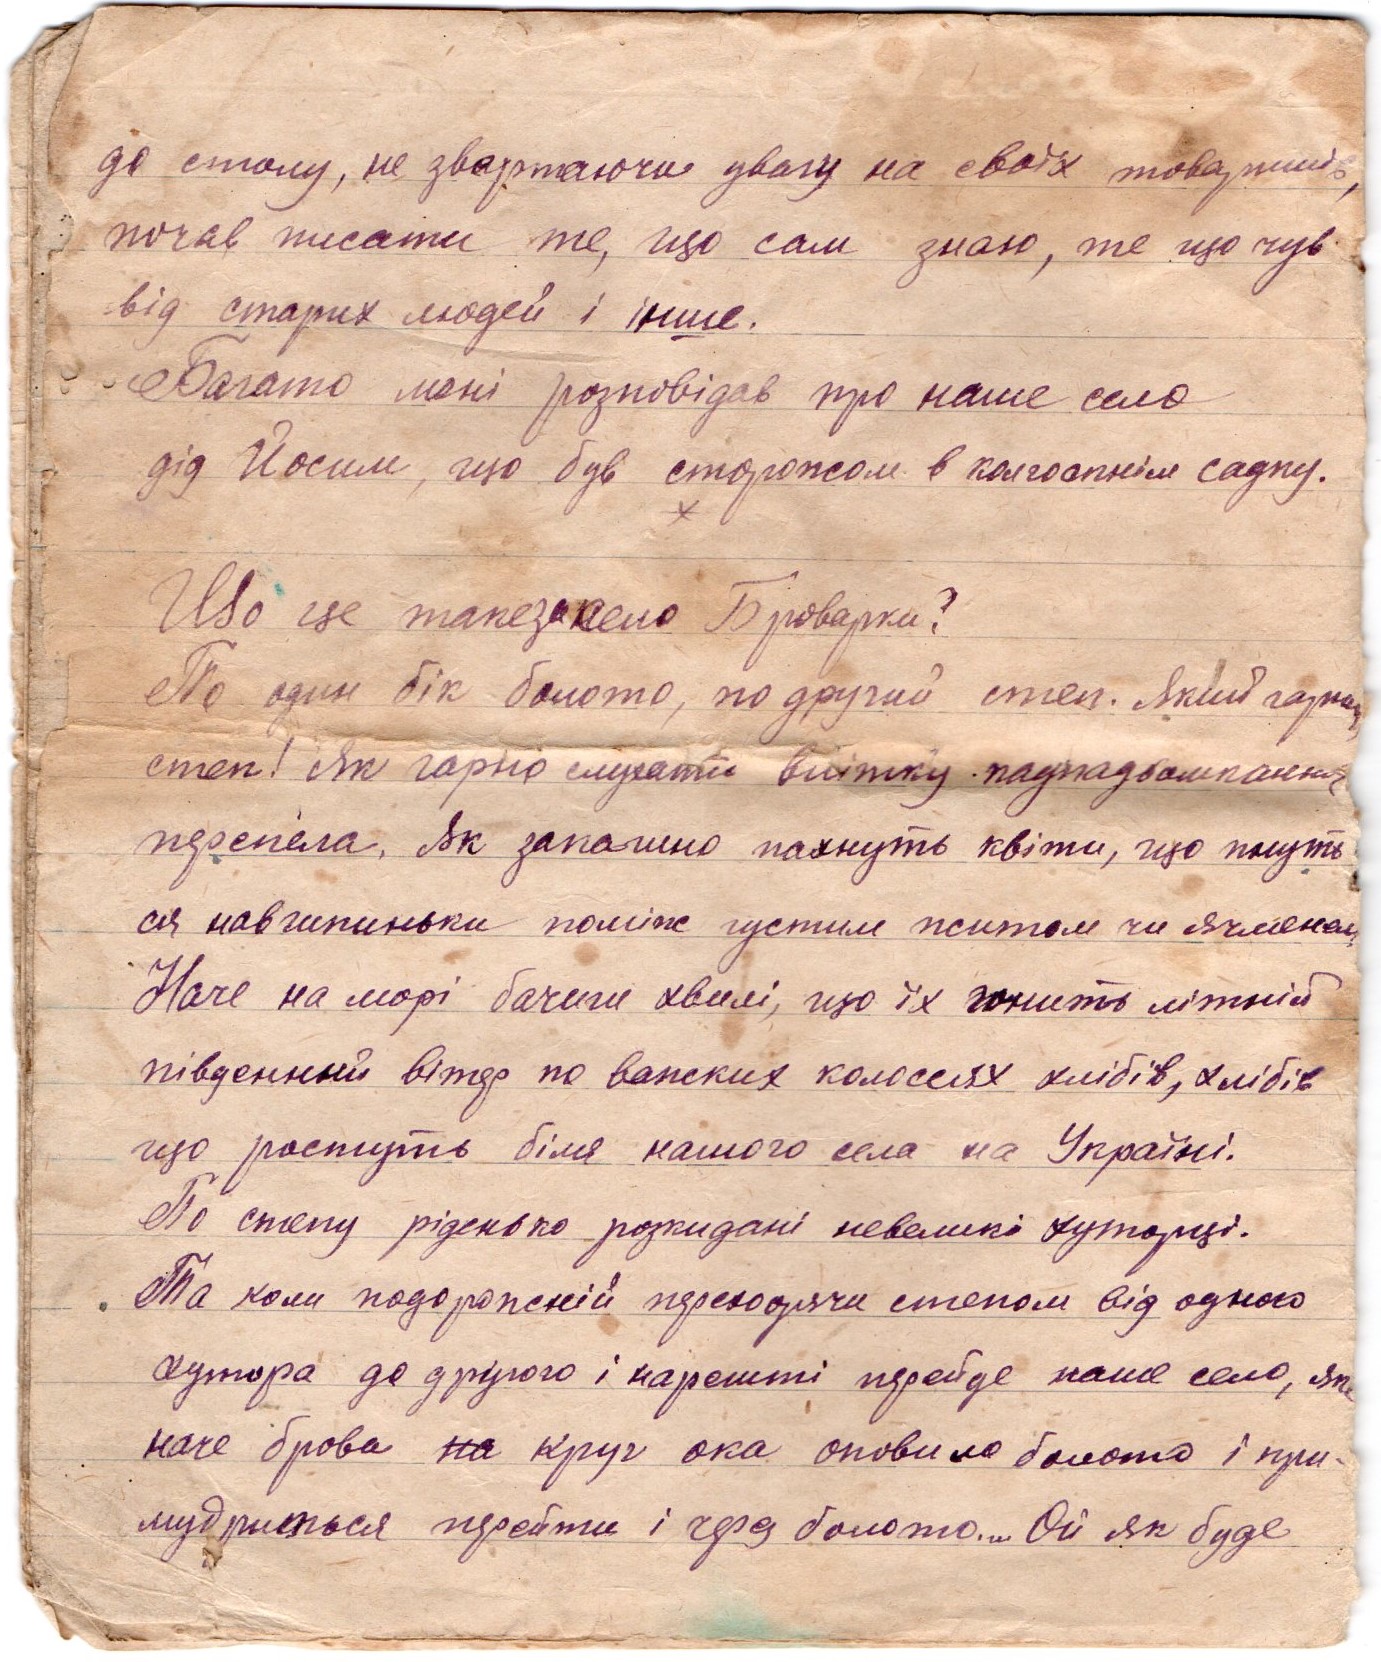 до столу, не звертаючи увагу на своїх товаришів,
почав писати те, що сам знаю, те що чув
від старих людей і інше.
Багато мені розповідав про наше село
дід Йосип, що був сторожом в колгоспнім садку.
х
Що це таке за село Броварки?
По один бік болото, по другий степ. Який гарний
степ! Як гарно слухати влітку падпадьомкання
перепела. Як запашно пахнуть квіти, що пнуть
ся навчипиньки поміж густим житом чи ячменем,
Наче на морі бачиш хвилі, що їх гонить літній
південний вітер по важких колоссях хлібів, хлібів
що ростуть біля нашого села на Україні.
По степу ріденько розкидані невеликі хуторці.
Та коли подорожній переходячи степом від одного
хутора до другого і нарешті перейде наше село, яке
наче брова на круг ока оповило болото і при-
мудриться перейти і через болото... Ой як буде